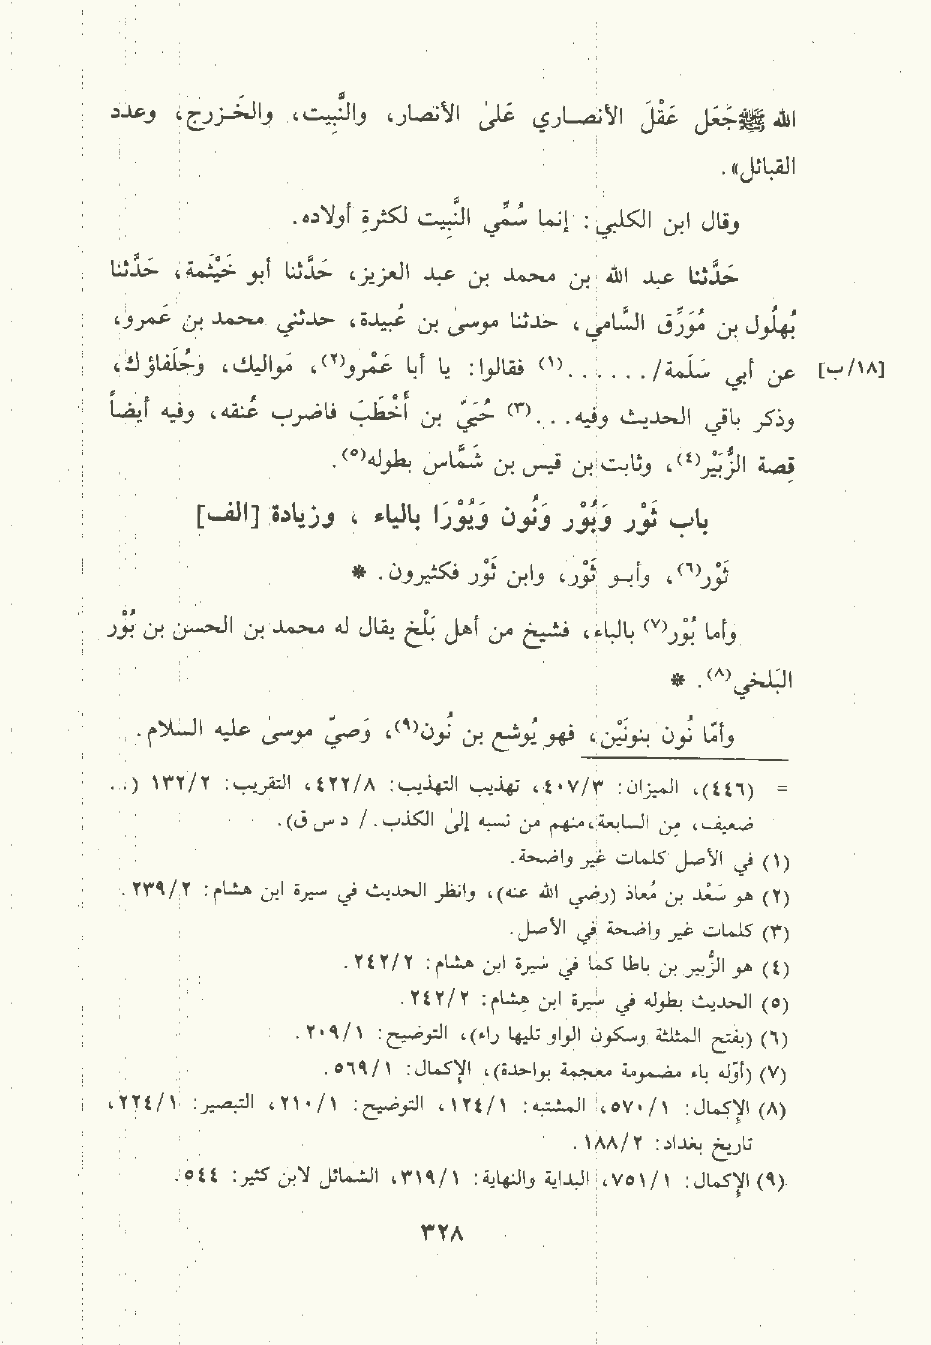 الله ﷺ جَعَل عَقْلَ الأنصاري عَلىٰ الأنصار، والنَّبِيت، والخَزرج، وعدد
القبائل».
وقال ابن الكلبي: إنما سُمِّي النَّبِيت لكثرةِ أولاده.
حَدَّثنا عبد الله بن محمد بن عبد العزيز، حَدَّثنا أبو خَيْثَمة، حَدَّثنا
بُهلُول بن مُوَرِّق السَّامي، حدثنا موسىٰ بن عُبيدة، حدثني محمد بن عَمرو،
[١٨/ب] عن أبي سَلَمة/ . . . . . .(١) فقالوا: يا أبا عَمْرو(٢)، مَواليك، وحُلَفاؤك،
وذكر باقي الحديث وفيه . . .(٣) حُيَيّ بن أَخْطَبَ فاضرب عُنقه، وفيه أيضاً
قِصة الزَّبَيْر(٤)، وثابت بن قيس بن شَمَّاس بطوله(٥).
باب ثَوْر وَبُوْر وَنُون وَيُوْرَا بالياء ، وزيادة [الف]
ثَوْر(٦)، وأبو ثَوْر، وابن ثَوْر فكثيرون. *
وأما بُوْر(٧) بالباء، فشيخ من أهل بَلْخ يقال له محمد بن الحسن بن بُوْر
البَلخي(٨). *
وأمَّا نُون بنونَيْن، فهو يُوشع بن نُون(٩)، وَصيّ موسىٰ عليه السلام.
= (٤٤٦)، الميزان: ٤٠٧/٣، تهذيب التهذيب: ٤٢٢/٨، التقريب: ١٣٢/٢ (...
ضعيف، مِن السابعة، منهم من نسبه إلىٰ الكذب. / د س ق).
(١) في الأصل كلمات غير واضحة.
(٢) هو سَعْد بن مُعاذ (رضي الله عنه)، وانظر الحديث في سيرة ابن هشام: ٢٣٩/٢.
(٣) كلمات غير واضحة في الأصل.
(٤) هو الزَّبير بن باطا كما في سيرة ابن هشام: ٢٤٢/٢.
(٥) الحديث بطوله في سيرة ابن هشام: ٢٤٢/٢.
(٦) (بفتح المثلثة وسكون الواو تليها راء)، التوضيح: ٢٠٩/١.
(٧) (أوّله باء مضمومة معجمة بواحدة)، الإكمال: ٥٦٩/١.
(٨) الإكمال: ٥٧٠/١، المشتبه: ١٢٤/١، التوضيح: ٢١٠/١، التبصير: ٢٢٤/١،
تاريخ بغداد: ١٨٨/٢.
(٩) الإكمال: ٧٥١/١، البداية والنهاية: ٣١٩/١، الشمائل لابن كثير: ٥٤٤.
٣٢٨